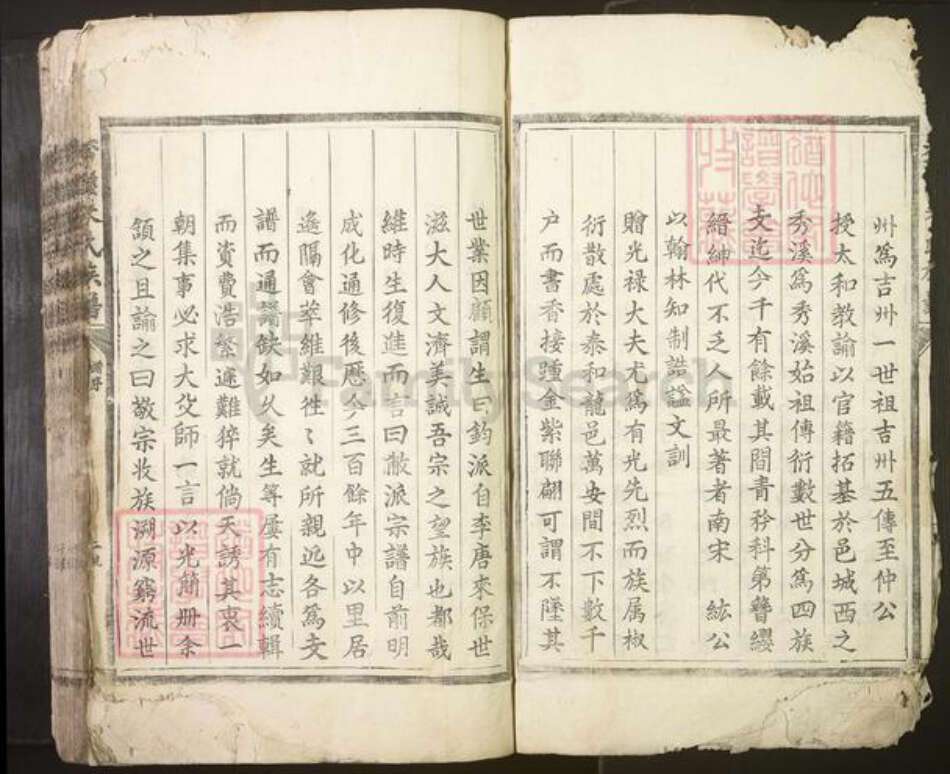 州爲吉州一世祖吉州五傳至仲公
授太和教諭以官籍拓基於邑城西之
秀溪爲秀溪始祖傳衍數世分爲四族
支迄今千有餘載其間青矜科第簪纓
縉紳代不乏人所最著者南宋 紘公
以翰林知制誥謚文訓
贈光禄大夫尤爲有光先烈而族属椒
衍散處於泰和龍邑萬安間不下數千
户而書香接踵金紫聯翩可謂不墜其
世業因顧謂生曰鈞派自李唐來保世
滋大人文濟美誠吾宗之望族也都哉
維時生復進而言曰敝派宗譜自前明
成化通修後歷今三百餘年中以里居
遙隔會萃維艱徃〻就所親近各爲支
譜而通譜缺如久矣生等屢有志續輯
而資費浩繁遽難猝就倘天誘其衷一
朝集事必求大父師一言以光簡册余
頷之且諭之曰敬宗收族溯源窮流世
氏族譜
FamilySearch